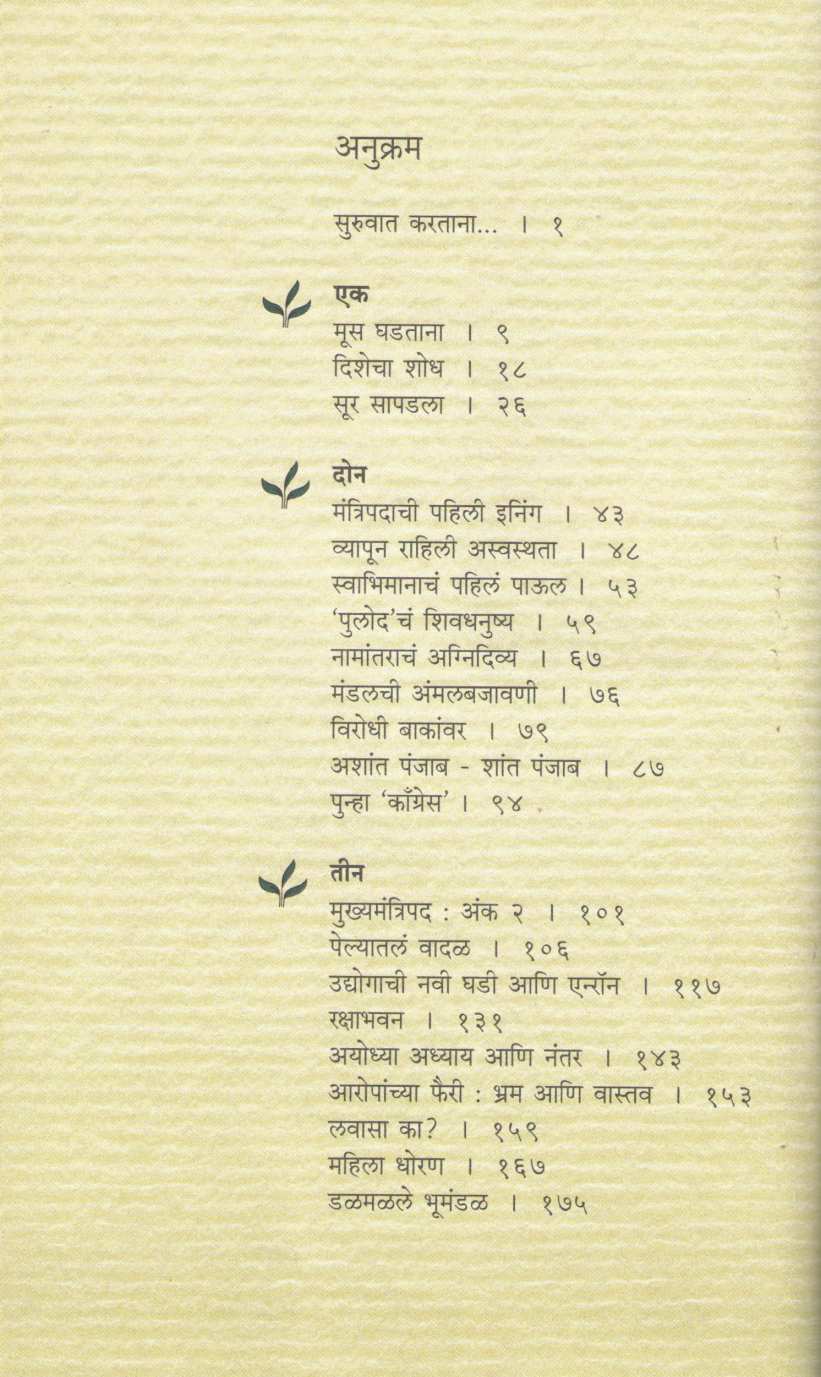 अनुक्रम
सुरुवात करताना... । १
एक
मूस घडताना । ९
दिशेचा शोध । १८
सूर सापडला । २६
दोन
मंत्रिपदाची पहिली इनिंग । ४३
व्यापून राहिली अस्वस्थता । ४८
स्वाभिमानाचं पहिलं पाऊल । ५३
‘पुलोद’चं शिवधनुष्य । ५९
नामांतराचं अग्निदिव्य । ६७
मंडलची अंमलबजावणी । ७६
विरोधी बाकांवर । ७९
अशांत पंजाब - शांत पंजाब । ८७
पुन्हा ‘काँग्रेस’ । ९४
तीन
मुख्यमंत्रिपद : अंक २ । १०१
पेल्यातलं वादळ । १०६
उद्योगाची नवी घडी आणि एन्रॉन । ११७
रक्षाभवन । १३१
अयोध्या अध्याय आणि नंतर । १४३
आरोपांच्या फैरी : भ्रम आणि वास्तव । १५३
लवासा का? । १५९
महिला धोरण । १६७
डळमळले भूमंडळ । १७५